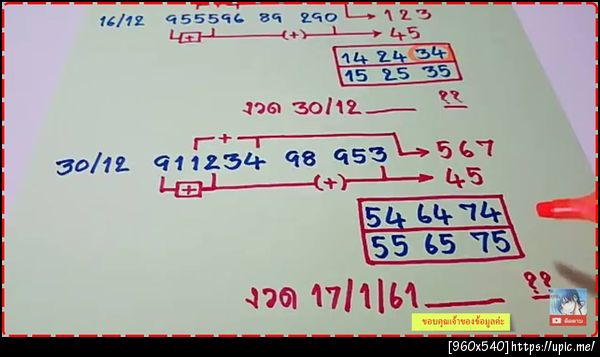 16/12 955596 89 290 → 123
+ (+) → 45
14 24 34
15 25 35
งวด 30/12 ____ ??
+
30/12 911234 98 953 → 567
+ (+) → 45
54 64 74
55 65 75
งวด 17/1/61 ____ ??
ติดตาม
ขอบคุณเจ้าของข้อมูลค่ะ
[960x540]https://upic.me/